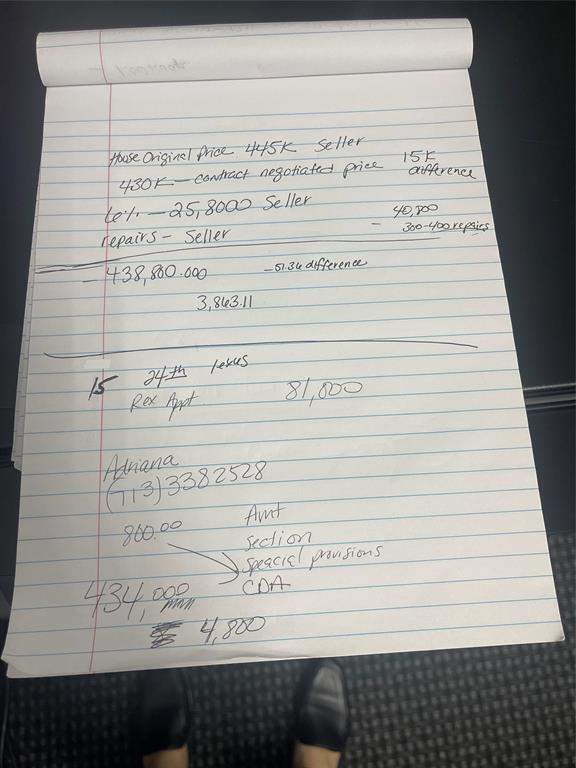 House Original Price 445K Seller
430K - contract negotiated price 15K difference
6% - 25,8000 Seller
40,800
repairs - Seller - 300-400 repairs
- 438,800.000 - 51.36 difference
3,863.11
15 24th lexus
Rex Appt 81,000
Adriana
(713)3382528
800.00 Amt
section
speacial provisions
CDA
434,000
4,800